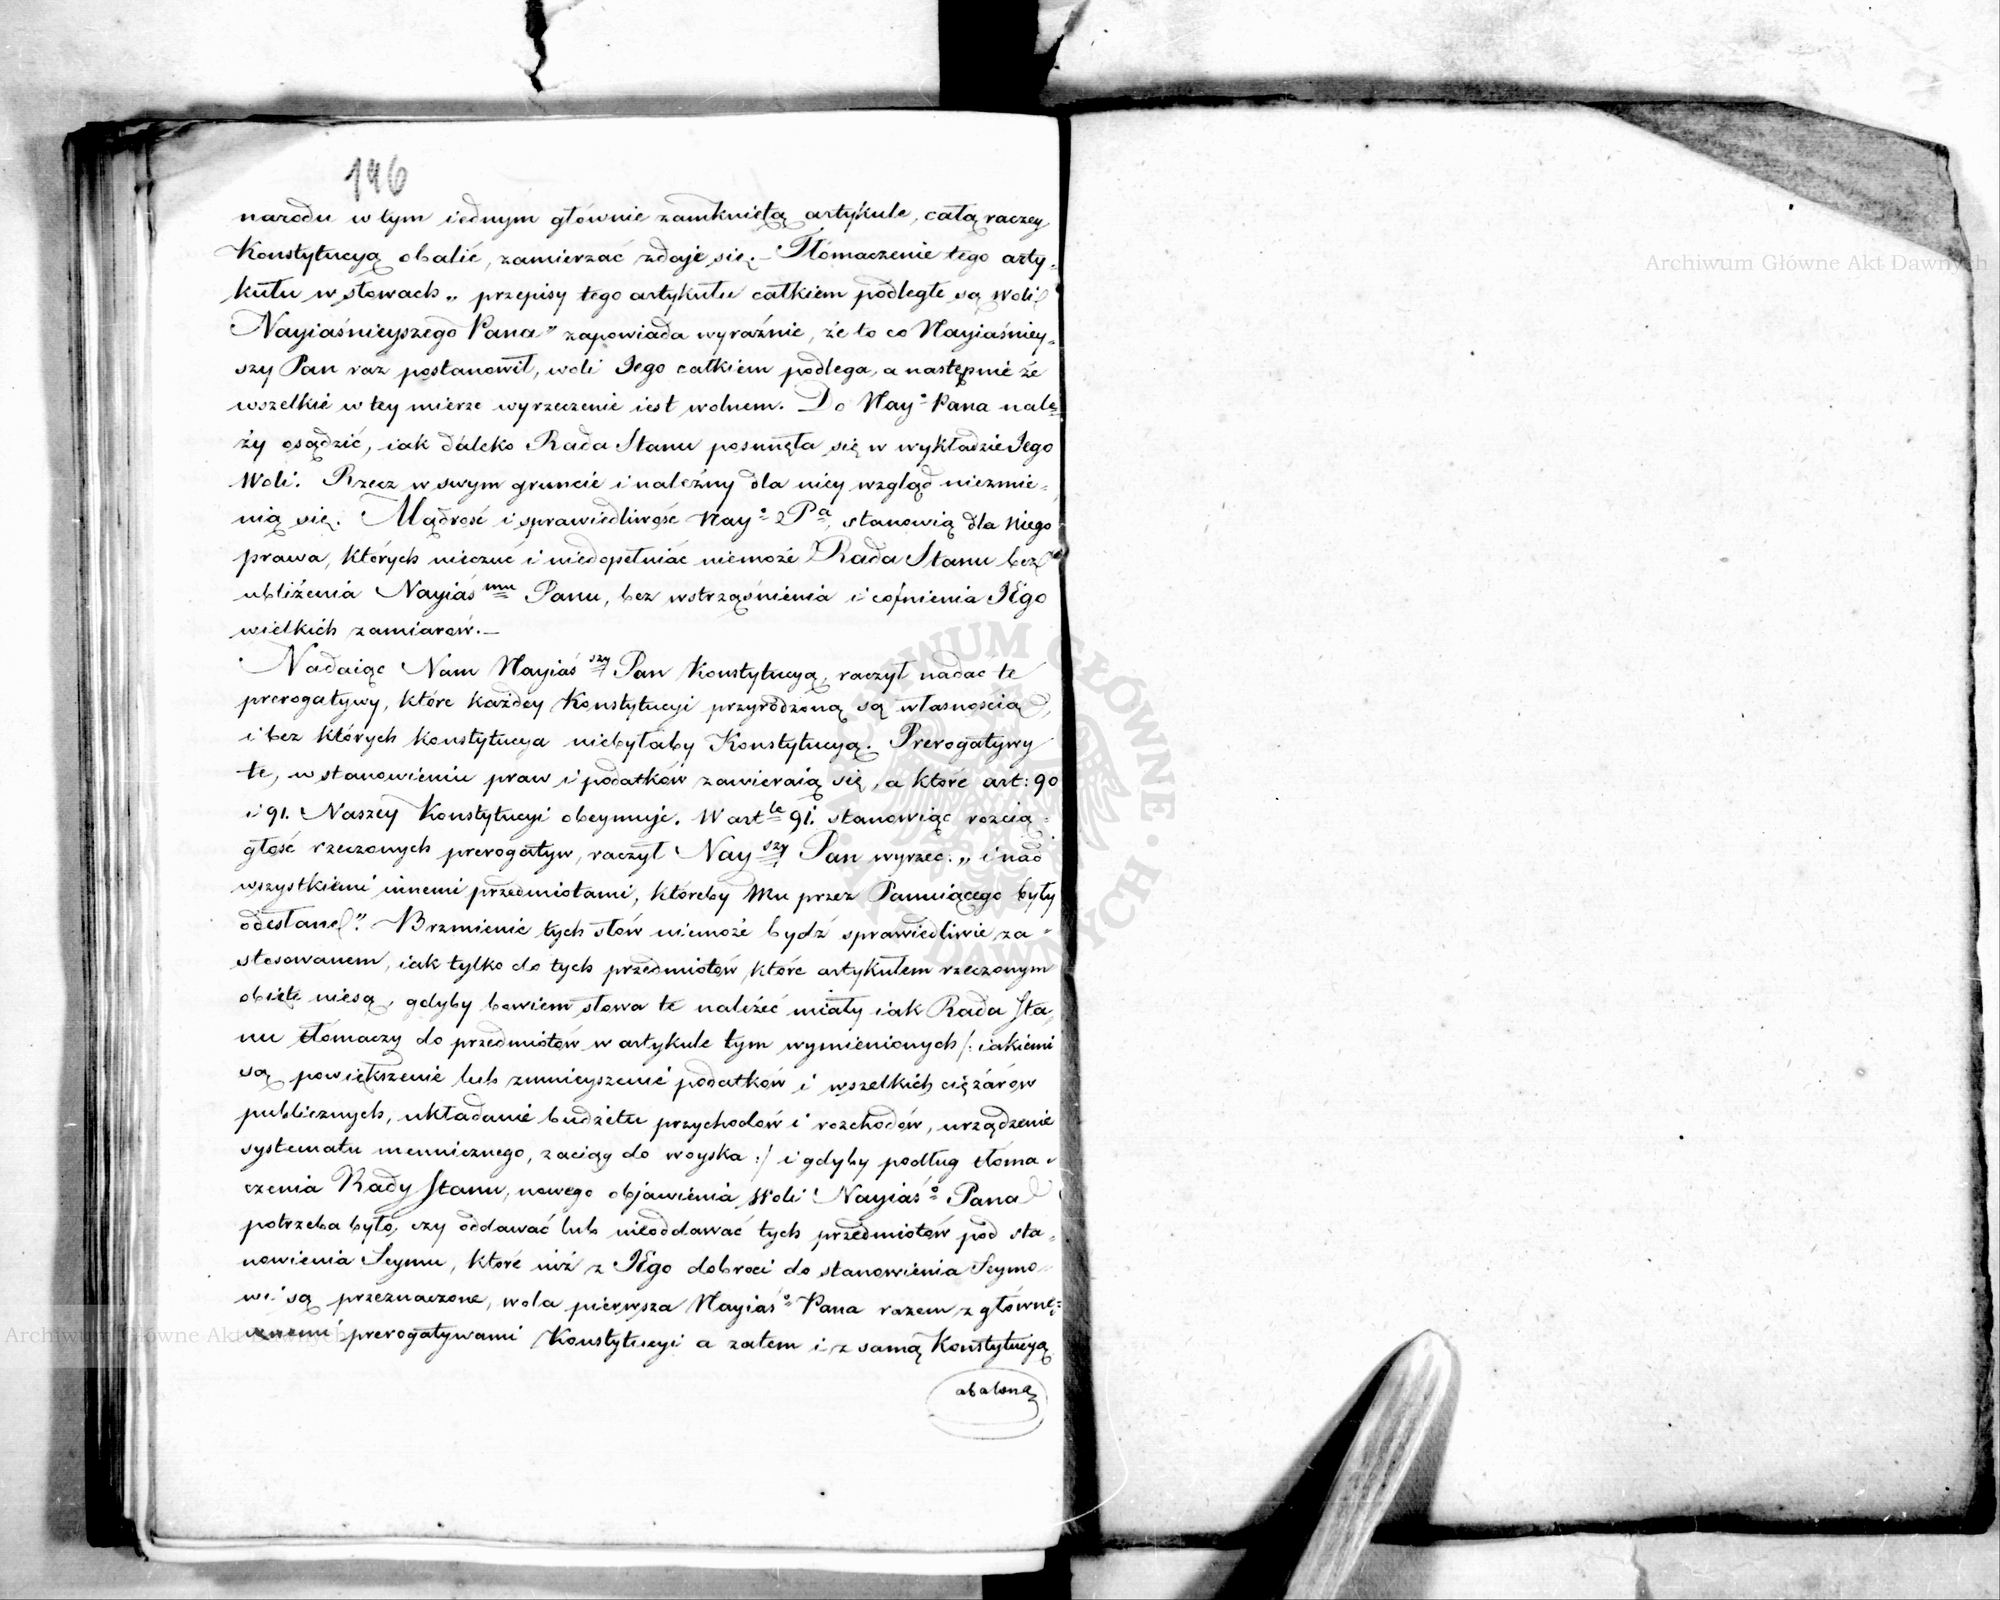 146
narodu w tym iednym głównie zamkniętą artykule, całą raczey
Konstytucyą obalić, zamierzać zdaje się. – Tłómaczenie tego arty-
kułu w słowach „ przepisy tego artykułu całkiem podległe są woli
Nayiaśnieyszego Pana" zapowiada wyraźnie, że to co Nayiaśniey-
szy Pan raz postanowił, woli Jego całkiem podlega, a następnie że
wszelkie w tey mierze wyrzeczenie iest wolnem. Do Nayo Pana nale-
ży osądzić, iak daleko Rada Stanu posunęła się w wykładzie Jego
Woli. Rzecz w swym gruncie i należny dla niey wzgląd niezmie-
nią się. Mądrość i sprawiedliwość Nayo Pa, stanowią dla Niego
prawa, których nieczuć i niedopełniać niemoże Rada Stanu bez
ubliżenia Nayiaśmu Panu, bez wstrząśnienia i cofnienia JEgo
wielkich zamiarów. –
Nadaiąc Nam Nayiaśszy Pan Konstytucyą, raczył nadać te
prerogatywy, które każdey Konstytucyi przyrodzoną są własnością,
i bez których konstytucya niebyłaby Konstytucyą. Prerogatywy
te, w stanowieniu praw i podatków zawieraią się, a które art: 90
i 91. Naszey Konstytucyi obeymuje. W artle 91. stanowiąc rozcią-
głość rzeczonych prerogatyw, raczył Nayszy Pan wyrzec: „ i nad
wszystkiemi innemi przedmiotami, któreby Mu przez Panuiącego były
odesłane". Brzmienie tych słów niemoże bydź sprawiedliwie za-
stosowanem, iak tylko do tych przedmiotów, które artykułem rzeczonym
obięte niesą, gdyby bowiem słowa te należeć miały iak Rada Sta-
nu tłómaczy do przedmiotów w artykule tym wymienionych /: iakiemi
są powiększenie lub zmnieyszenie podatków i wszelkich ciężarów
publicznych, układanie budżetu przychodów i rozchodów, urządzenie
systematu menniczego, zaciąg do woyska :/ i gdyby podług tłóma-
czenia Rady Stanu, nowego objawienia Woli Nayiaśo Pana
potrzeba było, czy oddawać lub nieoddawać tych przedmiotów pod sta-
nowienia Seymu, które iuż z JEgo dobroci do stanowienia Seymo-
wi są przeznaczone, wola pierwsza Nayiaśo Pana razem z główne-
prerogatywami Konstytucyi a zatem i z samą Konstytucyą
obaloną
Archiwum Główne Akt Dawnych
Archiwum Główne Akt Dawnych
ARCHIWUM GŁÓWNE AKT DAWNYCH